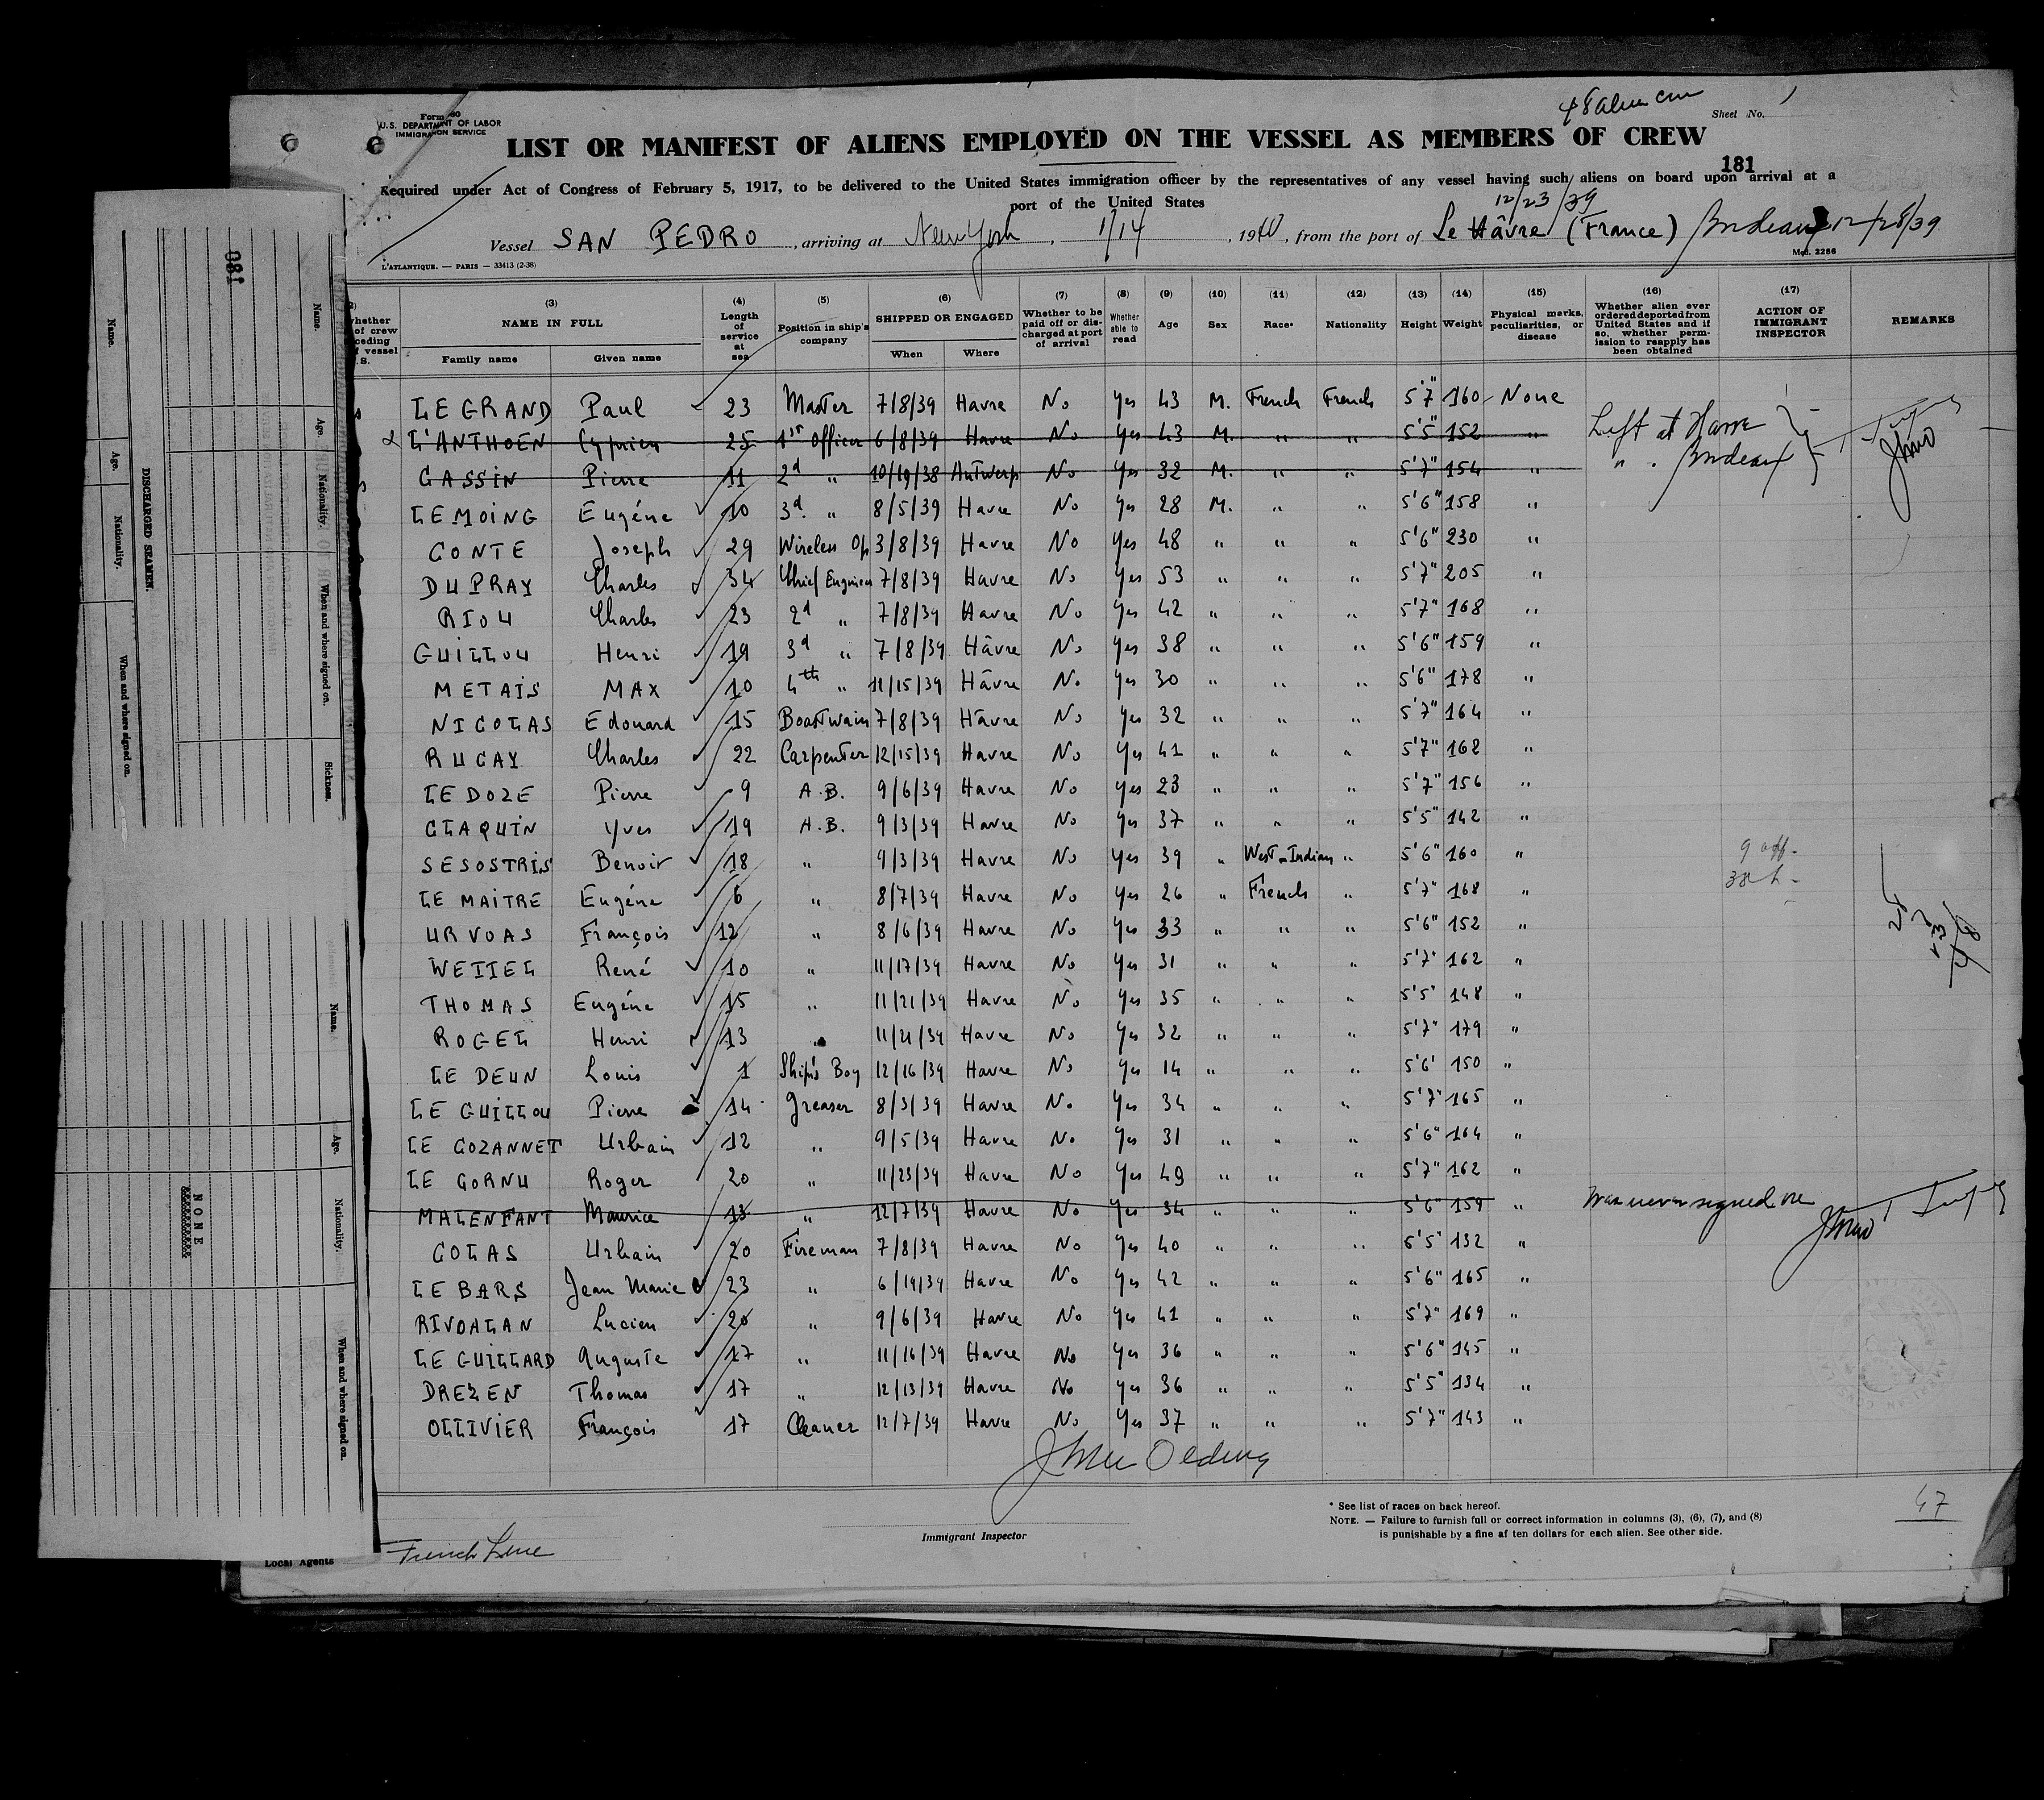 Form 680
U.S. DEPARTMENT OF LABOR
IMMIGRATION SERVICE
48 alien crew
Sheet No. 1
LIST OR MANIFEST OF ALIENS EMPLOYED ON THE VESSEL AS MEMBERS OF CREW
181
Required under Act of Congress of February 5, 1917, to be delivered to the United States immigration officer by the representatives of any vessel having such aliens on board upon arrival at a
port of the United States
12/23/39
Vessel SAN PEDRO, arriving at New York, 1/14, 1940, from the port of Le Hâvre (France) Bordeaux 12/28/39
L'ATLANTIQUE. — PARIS — 33413 (2-38)
Mod. 2286
(3) (4) (5) (6) (7) (8) (9) (10) (11) (12) (13) (14) (15) (16) (17)
NAME IN FULL
Family name Given name
Length of service at sea
Position in ship's company
SHIPPED OR ENGAGED
When Where
Whether to be paid off or discharged at port of arrival
Whether able to read
Age
Sex
Race*
Nationality
Height
Weight
Physical marks, peculiarities, or disease
Whether alien ever ordered deported from United States and if so, whether permission to reapply has been obtained
ACTION OF IMMIGRANT INSPECTOR
REMARKS
LE GRAND Paul 23 Master 7/8/39 Havre No Yes 43 M. French French 5'7" 160 None
L'ANTHOEN Cyprien 25 1st Officer 6/8/39 Havre No Yes 43 M. " " 5'5" 152 " Left at Havre
GASSIN Pierre 11 2d " 10/19/38 Antwerp No Yes 32 M. " " 5'7" 154 " " " Bordeaux
LEMOING Eugéne 10 3d " 8/5/39 Havre No Yes 28 M. " " 5'6" 158 "
CONTE Joseph 29 Wireless Op 3/8/39 Havre No Yes 48 " " " 5'6" 230 "
DUPRAY Charles 34 Chief Engineer 7/8/39 Havre No Yes 53 " " " 5'7" 205 "
RIOU Charles 23 2d " 7/8/39 Havre No Yes 42 " " " 5'7" 168 "
GUILLOU Henri 19 3d " 7/8/39 Hâvre No Yes 38 " " " 5'6" 159 "
METAIS MAX 10 4th " 11/15/39 Hâvre No Yes 30 " " " 5'6" 178 "
NICOLAS Edouard 15 Boatswain 7/8/39 Hâvre No Yes 32 " " " 5'7" 164 "
RUCAY Charles 22 Carpenter 12/15/39 Havre No Yes 41 " " " 5'7" 168 "
LE DOZE Pierre 9 A.B. 9/6/39 Havre No Yes 23 " " " 5'7" 156 "
CLAQUIN Yves 19 A.B. 9/3/39 Havre No Yes 37 " " " 5'5" 142 "
SESOSTRIS Benoit 18 " 9/3/39 Havre No Yes 39 " West-Indian " 5'6" 160 " 9 off-
LE MAITRE Eugéne 6 " 8/7/39 Havre No Yes 26 " French " 5'7" 168 "
URVOAS François 12 " 8/6/39 Havre No Yes 33 " " " 5'6" 152 "
WETTEL René 10 " 11/17/39 Havre No Yes 31 " " " 5'7" 162 "
THOMAS Eugéne 15 " 11/21/39 Havre No Yes 35 " " " 5'5" 148 "
ROGEL Henri 13 " 11/21/39 Havre No Yes 32 " " " 5'7" 179 "
LE DEUN Louis 1 Ship's Boy 12/16/39 Havre No Yes 14 " " " 5'6" 150 "
LE GUILLOU Pierre 14 Greaser 8/3/39 Havre No Yes 34 " " " 5'7" 165 "
LE COZANNET Urbain 12 " 9/5/39 Havre No Yes 31 " " " 5'6" 164 "
LE CORNU Roger 20 " 11/23/39 Havre No Yes 49 " " " 5'7" 162 "
MALENFANT Maurice 13 " 12/7/39 Havre No Yes 34 " " " 5'6" 159 " Was never signed on
COLAS Urbain 20 Fireman 7/8/39 Havre No Yes 40 " " " 5'5" 132 "
LE BARS Jean Marie 23 " 6/19/39 Havre No Yes 42 " " " 5'6" 165 "
RIVOALAN Lucien 20 " 9/6/39 Havre No Yes 41 " " " 5'7" 169 "
LE GUILLARD Auguste 17 " 11/16/39 Havre No Yes 36 " " " 5'6" 145 "
DREZEN Thomas 17 " 12/13/39 Havre No Yes 36 " " " 5'5" 134 "
OLLIVIER François 17 Cleaner 12/7/39 Havre No Yes 37 " " " 5'7" 143 "
47
* See list of races on back hereof.
NOTE. — Failure to furnish full or correct information in columns (3), (6), (7), and (8)
is punishable by a fine af ten dollars for each alien. See other side.
Immigrant Inspector
French Line
Local Agents
180
DISCHARGED SEAMEN.
Name. Age. Nationality. When and where signed on. Sickness.
Name. Age. Nationality. When and where signed on.
Name. Age. Nationality. When and where signed on.
NONE